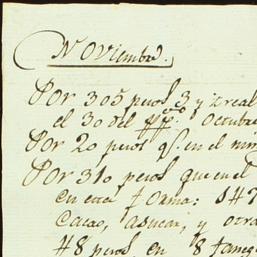 Noviembre.
Por 305 pesos 3 y ½ real
el 30 del ppdo. Octubre
Por 20 pesos qe. en el mis
Por 310 pesos que en el
en esta forma: 147
Cacao, asucar, y otra
48 pesos, en 8 faneg